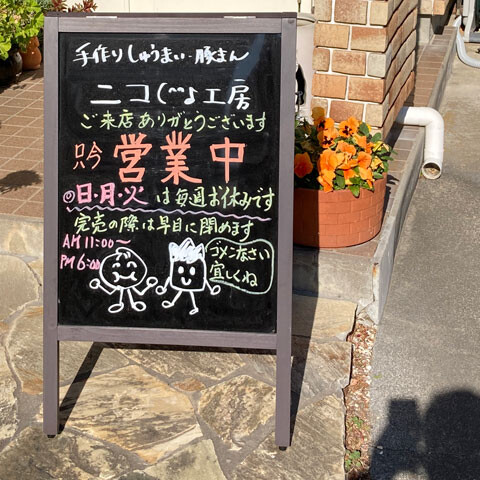 手作りしゅうまい・豚まん
ニコ工房
ご来店ありがとうございます
只今 営業中
◎日・月・火は毎週お休みです
完売の際は早目に閉めます
AM 11:00〜
PM 6:00
ゴメンなさい
宜しくね